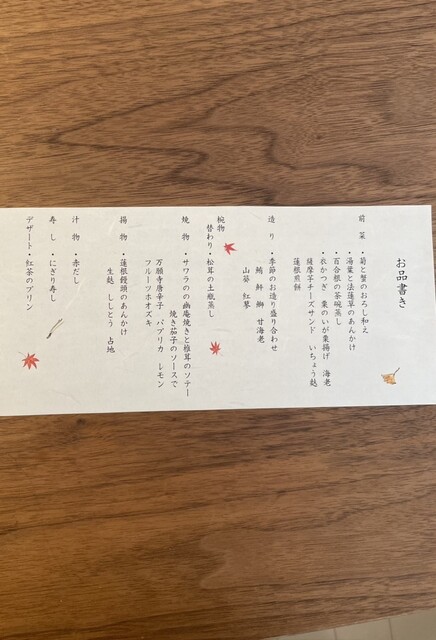 お品書き
前 菜・菊と蟹のおろし和え
・湯葉と法蓮草のあんかけ
・百合根の茶碗蒸し
・衣かつぎ 栗のいが栗揚げ 海老
薩摩芋チーズサンド いちょう麩
蓮根煎餅
造 り・季節のお造り盛り合わせ
鮪 鮃 鰤 甘海老
山葵 紅蓼
椀物
替わり・松茸の土瓶蒸し
焼 物・サワラのの幽庵焼きと椎茸のソテー
焼き茄子のソースで
万願寺唐辛子 パプリカ レモン
フルーツホオズキ
揚 物・蓮根饅頭のあんかけ
生麩 ししとう 占地
汁 物・赤だし
寿 し・にぎり寿し
デザート・紅茶のプリン